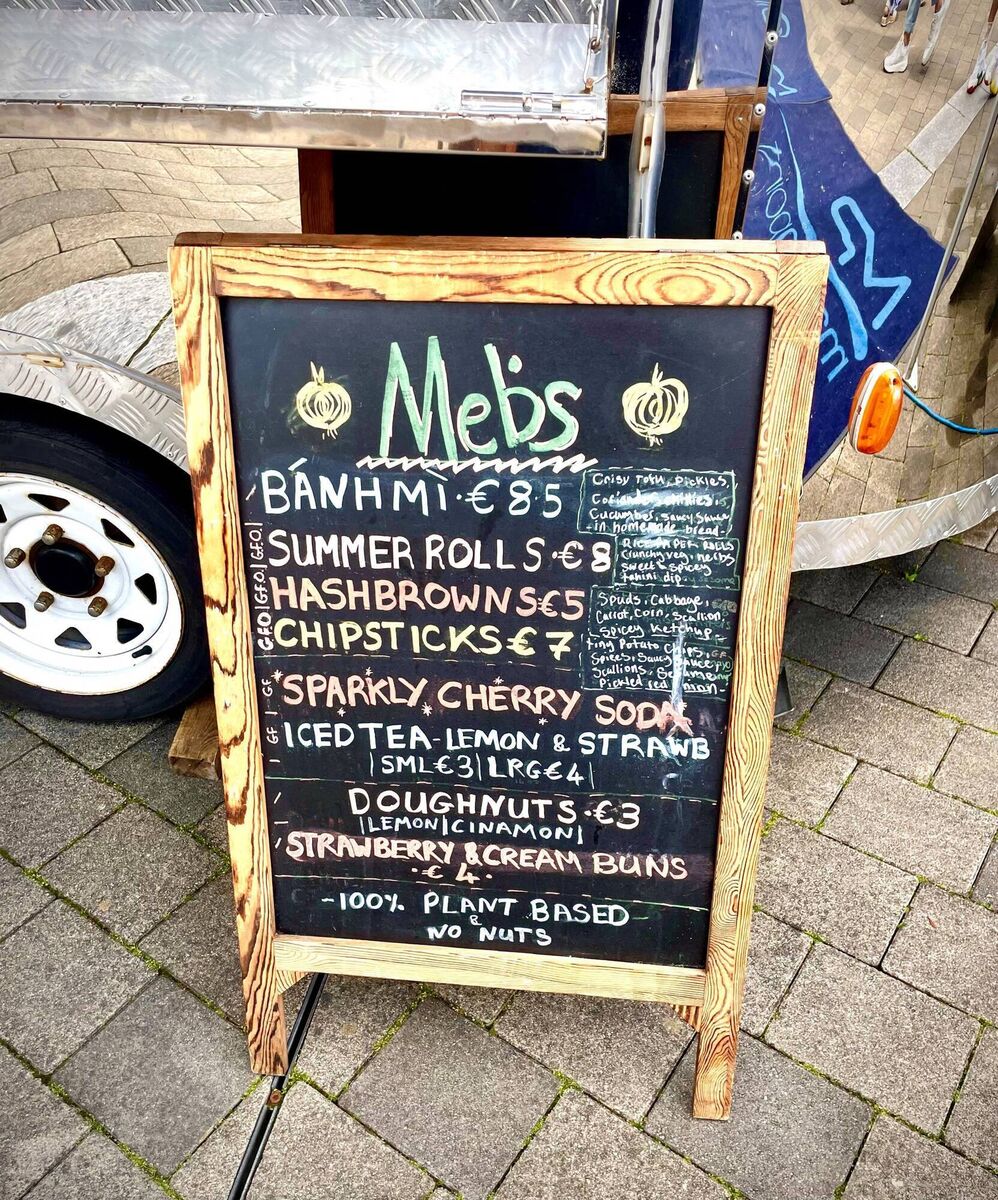 Meb's
BÁNH MÌ · € 8·5
Crisy Tofu, Pickles,
Coriander, chillies,
Cucumber, Saucy Sauce
-in homemade bread-
G.F.O.|G.F.O.|G.F.O.|
SUMMER ROLLS · € 8
RICE PAPER ROLLS
Crunchy veg, herbs
sweet & spicey
tahini dip
HASHBROWNS €5
Spuds, Cabbage,
Carrot, Corn, Scallion,
Spicey Ketchup
CHIPSTICKS € 7
Tiny Potato Chips, GF
Spices, Saucy Sauce
Scallions, Sesame
Pickled red onion-
GF | GF
*SPARKLY CHERRY SODA
ICED TEA - LEMON & STRAWB
|SML €3|LRG €4|
DOUGHNUTS · €3
|LEMON|CINAMON|
STRAWBERRY & CREAM BUNS
· € 4 ·
-100% PLANT BASED
&
NO NUTS